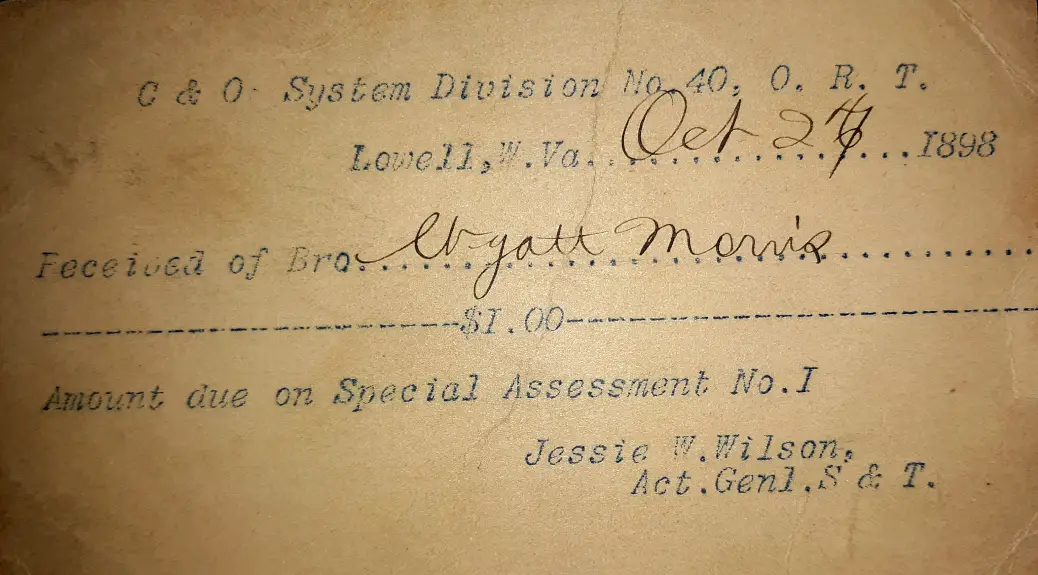 C & O System Division No.40, O. R. T.
Lowell,W.Va............Oct ...1898
Received of Bro.......Wyatt Morris............
-------------------------$1.00-----------------------------
Amount due on Special Assessment No.I
Jessie W.Wilson,
Act.Genl.S & T.